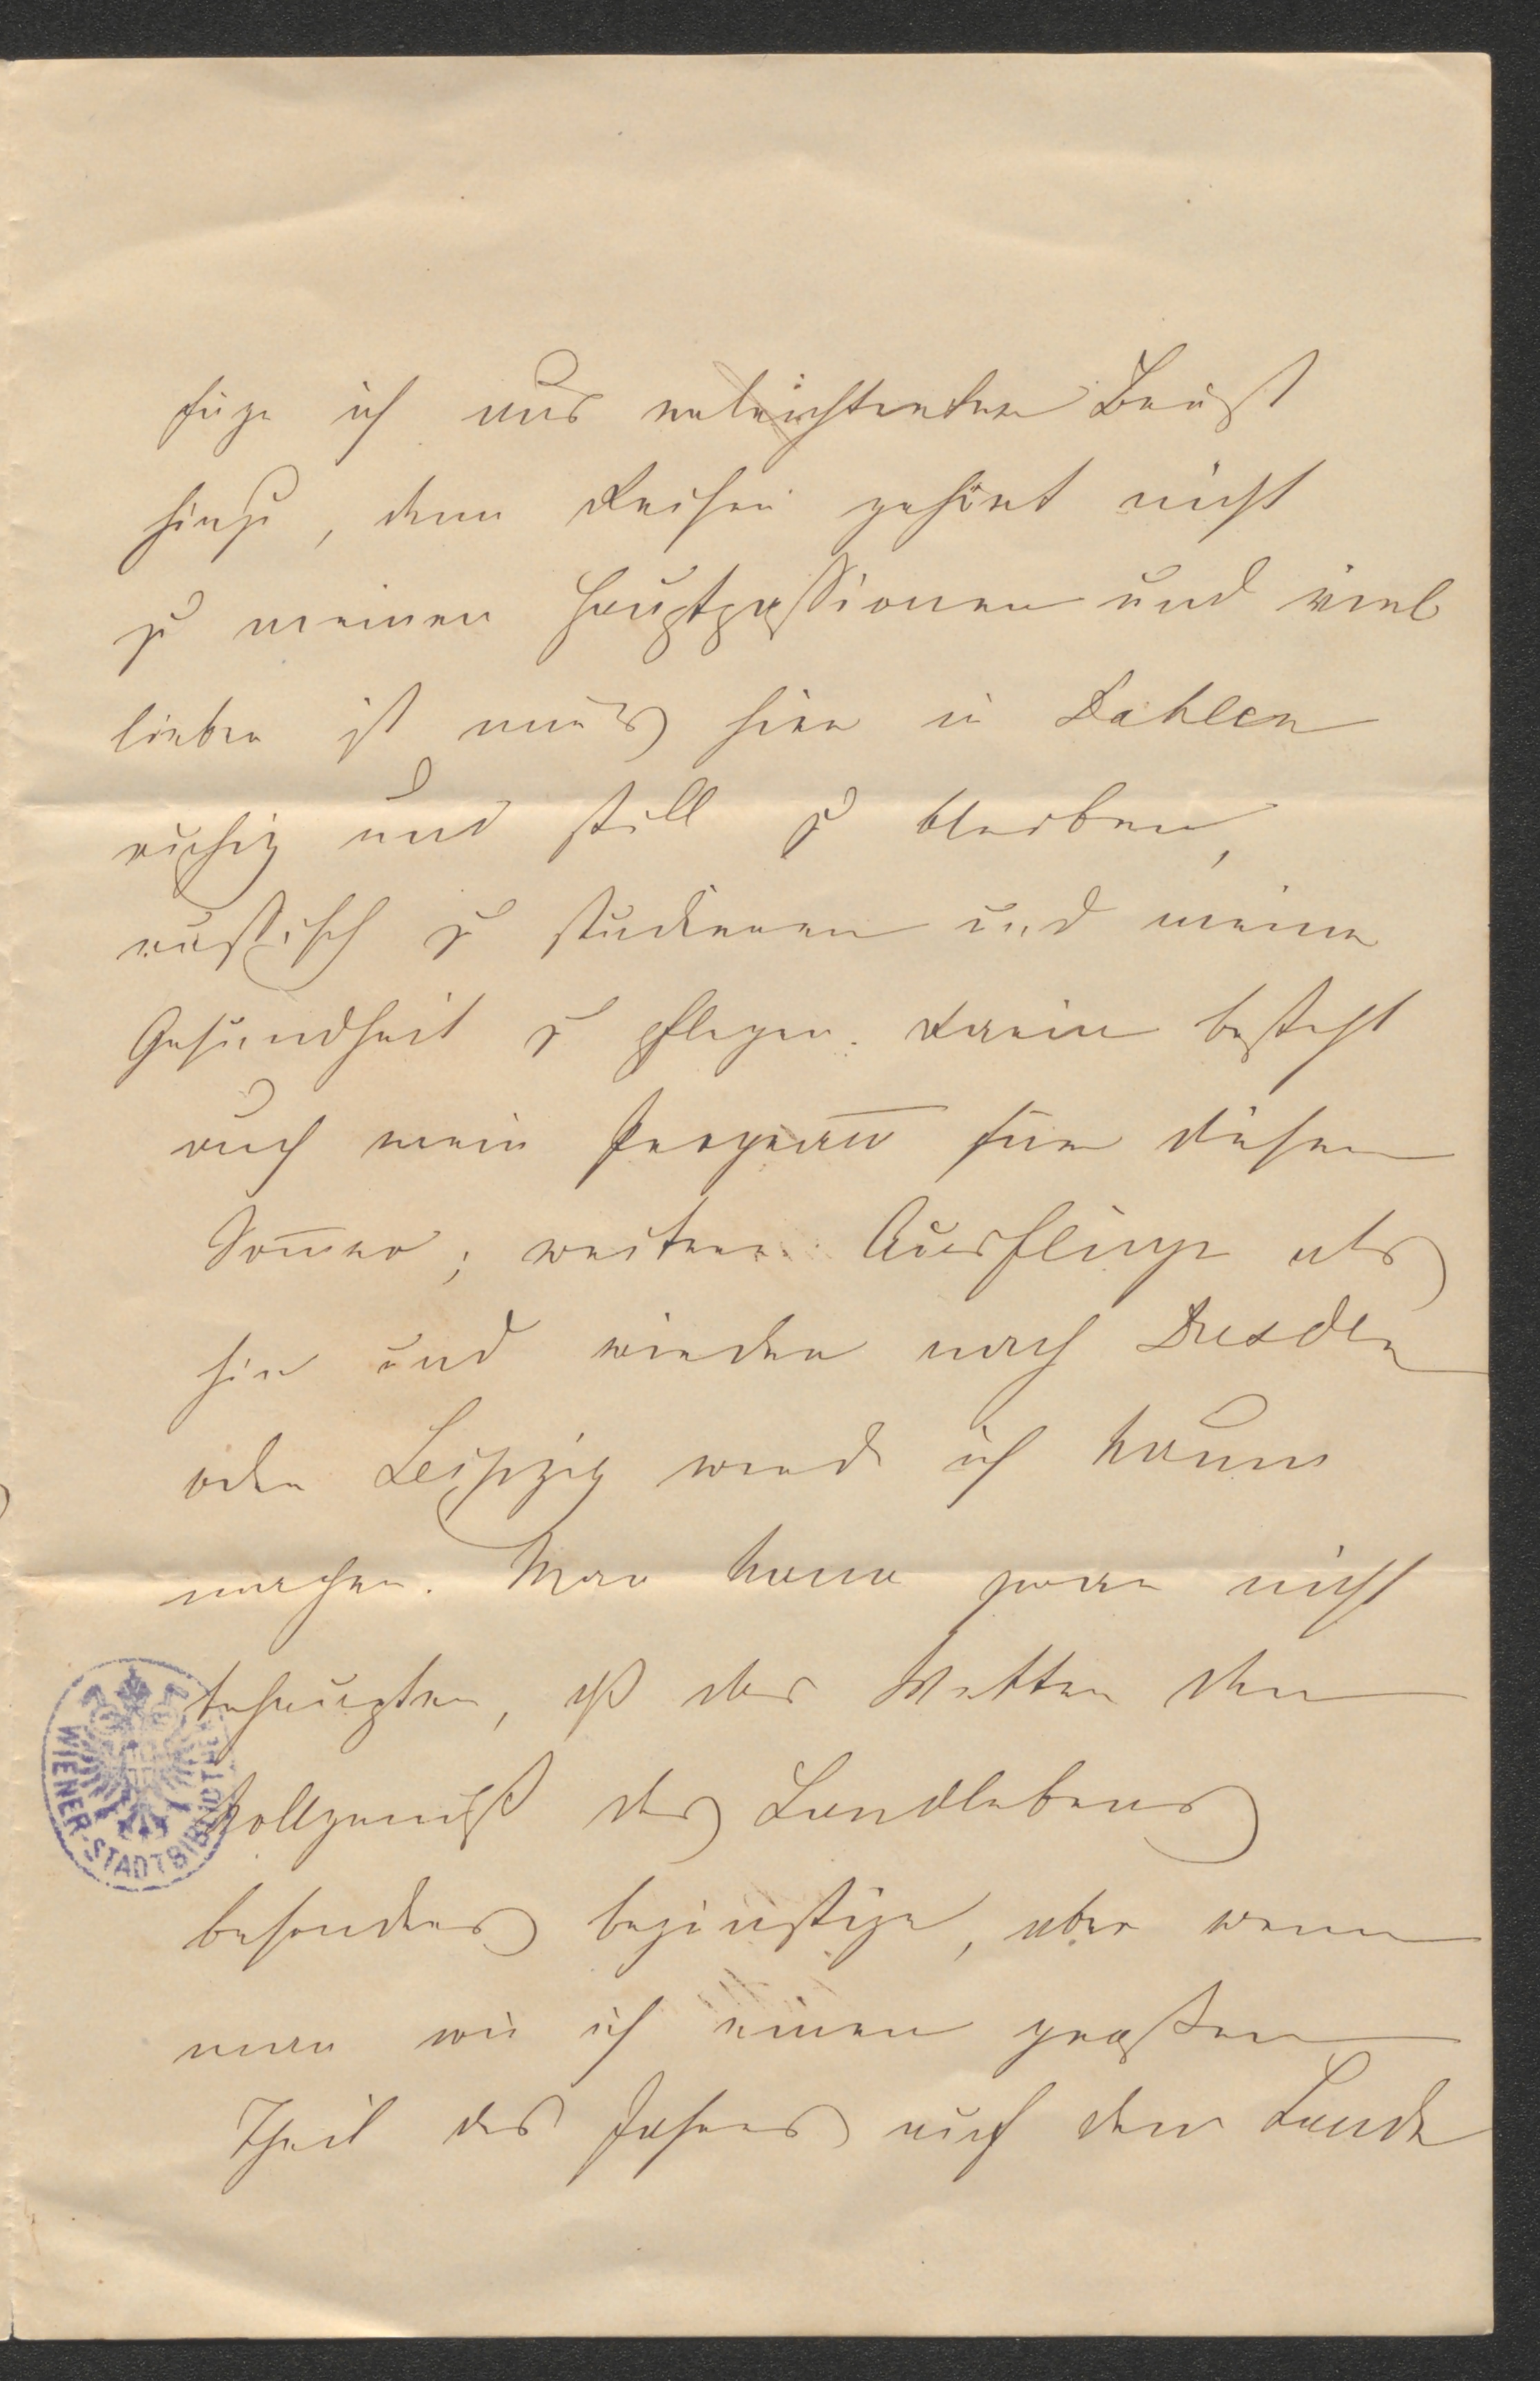 füge ich aus erleichterter Brust
hinzu, denn Reisen gehört nicht
zu meinen Hauptpassionen und viel
lieber ist mir's hier in Dahlen
ruhig und still zu bleiben,
russisch zu studieren und meine
Gesundheit zu pflegen. Darin besteht
auch mein Program̅ für diesen
Som̅er; weitere Ausflüge als
hin und wieder nach Dresden
oder Leipzig werde ich kaum
machen. Man kann zwar nicht
behaupten, daß das Wetter den
Vollgenuß des Landlebens
besonders begünstige, aber wenn
man wie ich einen großen
Theil des Jahres auf dem Lande
WIENER-STADTBIBLIOTHEK